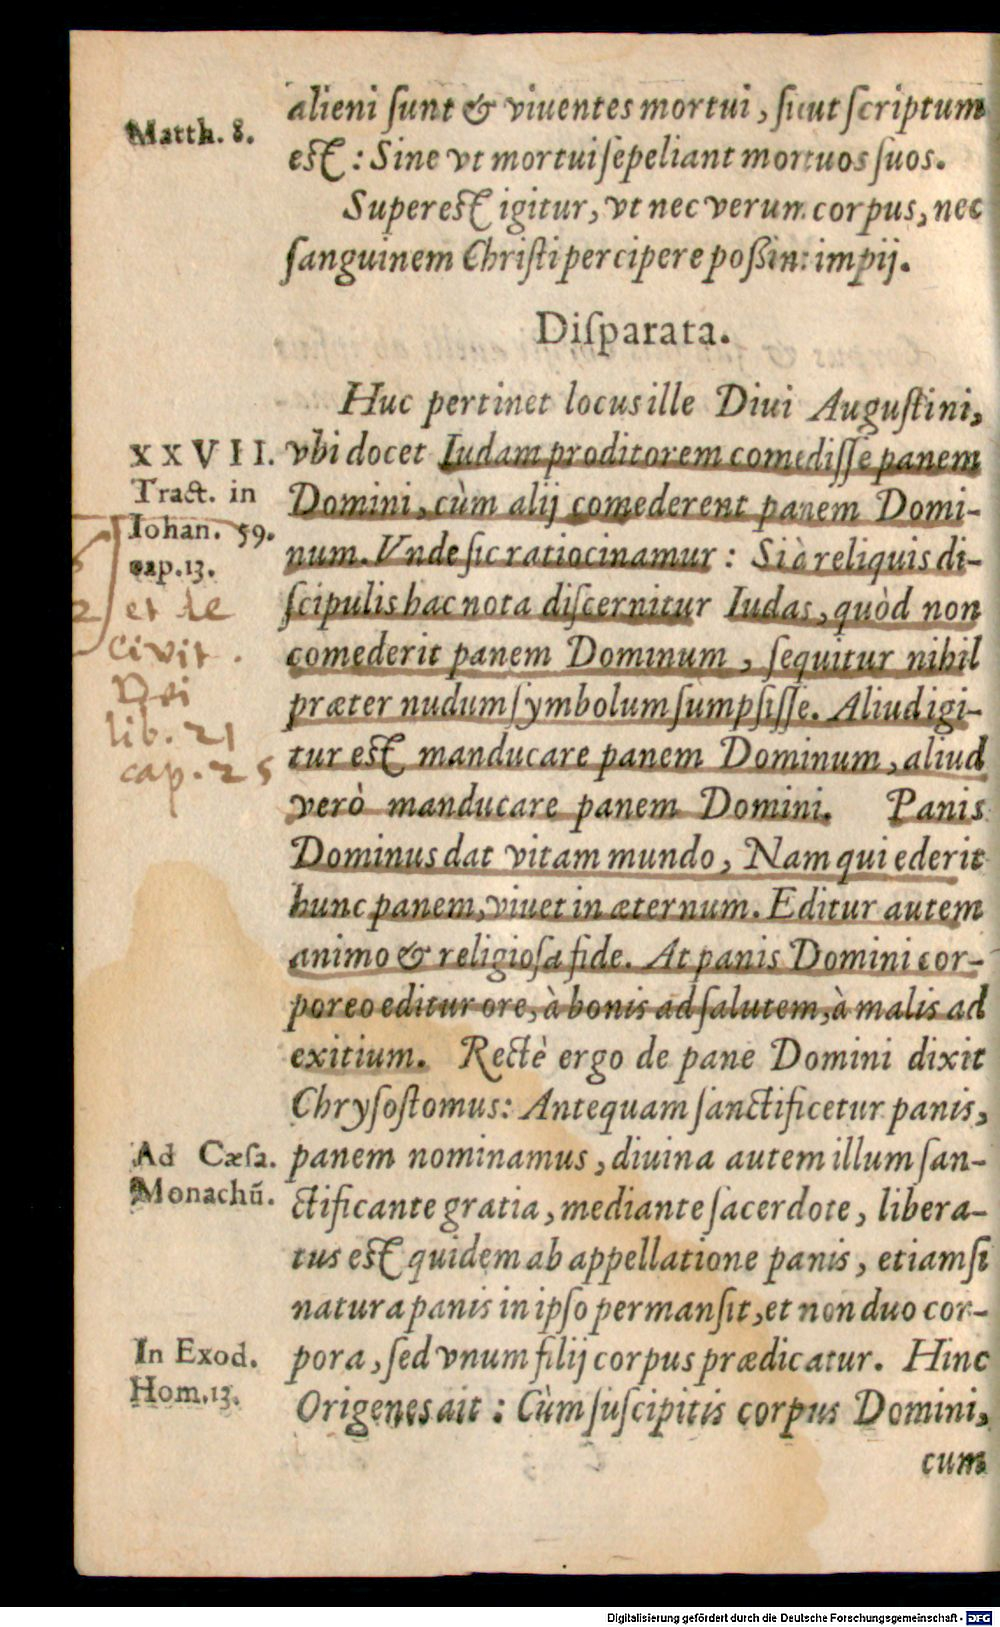 alieni ſunt & viuentes mortui, ſicut ſcriptum
Matth. 8.
eſt: Sine vt mortui ſepeliant mortuos ſuos.
Supereſt igitur, vt nec verum corpus, nec
ſanguinem Chriſti percipere poßint impij.
Diſparata.
Huc pertinet locus ille Diui Auguſtini,
XXVII.
Tract. in
Iohan. 59.
cap. 13.
et de
civit.
Dei
lib. 21
cap. 25
vbi docet Iudam proditorem comediſſe panem
Domini, cùm alij comederent panem Domi-
num. Vnde ſic ratiocinamur: Si à reliquis di-
ſcipulis hac nota diſcernitur Iudas, quòd non
comederit panem Dominum, ſequitur nihil
præter nudum ſymbolum ſumpſiſſe. Aliud igi-
tur eſt manducare panem Dominum, aliud
verò manducare panem Domini. Panis
Dominus dat vitam mundo, Nam qui ederit
hunc panem, viuet in æternum. Editur autem
animo & religioſa fide. At panis Domini cor-
poreo editur ore, à bonis ad ſalutem, à malis ad
exitium. Rectè ergo de pane Domini dixit
Chryſoſtomus: Antequam ſanctificetur panis,
Ad Cæſa.
Monachū.
panem nominamus, diuina autem illum ſan-
ctificante gratia, mediante ſacerdote, libera-
tus eſt quidem ab appellatione panis, etiamſi
natura panis in ipſo permanſit, et non duo cor-
In Exod.
Hom. 13.
pora, ſed vnum filij corpus prædicatur. Hinc
Origenes ait: Cùm ſuſcipitis corpus Domini,
cum
Digitalisierung gefördert durch die Deutsche Forschungsgemeinschaft - DFG